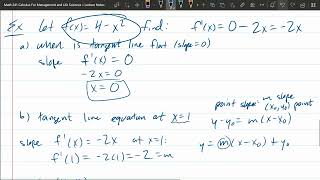 Math 245 Calculus For Management and Life Science > Lecture Notes
Ex let f(x) = 4 - x² find: f'(x) = 0 - 2x = -2x
a) when is tangent line flat (slope=0)
slope f'(x) = 0
-2x = 0
x = 0
b) tangent line equation at x=1
slope f'(x) = -2x at x=1:
f'(1) = -2(1) = -2 = m
point slope: m slope
(x₀, y₀) point
y - y₀ = m(x - x₀)
y = m(x - x₀) + y₀